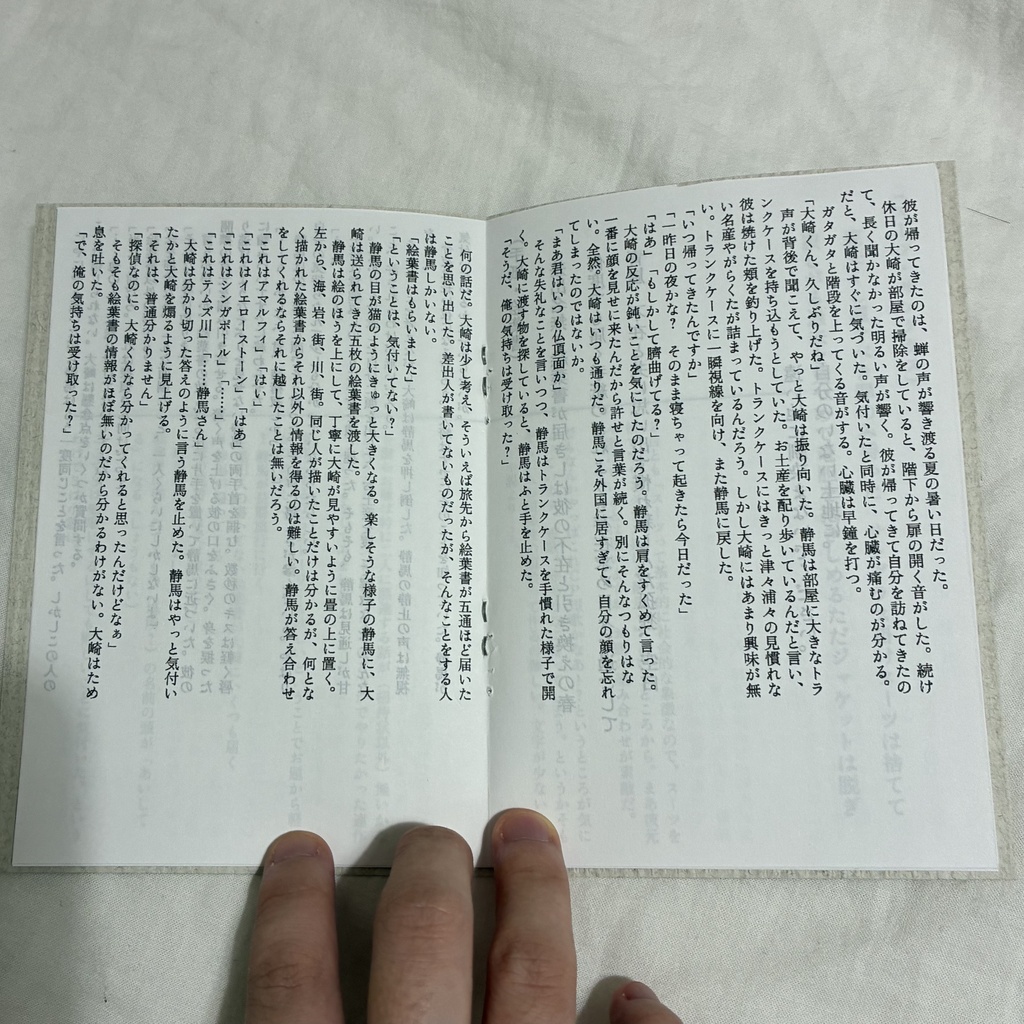 彼が帰ってきたのは、蝉の声が響き渡る夏の暑い日だった。
休日の大崎が部屋で掃除をしていると、階下から扉の開く音がした。続け
て、長く聞かなかった明るい声が響く。彼が帰ってきて自分を訪ねてきたの
だと、大崎はすぐに気づいた。気付いたと同時に、心臓が痛むのが分かる。
ガタガタと階段を上ってくる音がする。心臓は早鐘を打つ。
「大崎くん、久しぶりだね」
声が背後で聞こえて、やっと大崎は振り向いた。静馬は部屋に大きなトラ
ンクケースを持ち込もうとしていた。お土産を配り歩いているんだと言い、
彼は焼けた頬を釣り上げた。トランクケースにはきっと津々浦々の見慣れな
い名産やがらくたが詰まっているんだろう。しかし大崎にはあまり興味が無
い。トランクケースに一瞬視線を向け、また静馬に戻した。
「いつ帰ってきたんですか」
「一昨日の夜かな？　そのまま寝ちゃって起きたら今日だった」
「はあ」「もしかして臍曲げてる？」
大崎の反応が鈍いことを気にしたのだろう。静馬は肩をすくめて言った。
一番に顔を見せに来たんだから許せと言葉が続く。別にそんなつもりはな
い。全然。大崎はいつも通りだ。静馬こそ外国に居すぎて、自分の顔を忘れ
てしまったのではないか。
「まあ君はいつも仏頂面か」
そんな失礼なことを言いつつ、静馬はトランクケースを手慣れた様子で開
く。大崎に渡す物を探していると、静馬はふと手を止めた。
「そうだ、俺の気持ちは受け取った？」
何の話だ。大崎は少し考え、そういえば旅先から絵葉書が五通ほど届いた
ことを思い出した。差出人が書いてないものだったが、そんなことをする人
は静馬しかいない。
「絵葉書はもらいました」
「ということは、気付いてない？」
静馬の目が猫のようにきゅっと大きくなる。楽しそうな様子の静馬に、大
崎は送られてきた五枚の絵葉書を渡した。
静馬は絵のほうを上にして、丁寧に大崎が見やすいように畳の上に置く。
左から、海、岩、街、川、街。同じ人が描いたことだけは分かるが、何とな
く描かれた絵葉書からそれ以外の情報を得るのは難しい。静馬が答え合わせ
をしてくれるならそれに越したことは無いだろう。
「これはアマルフィ」「はい」
「これはイエローストーン」「はあ」
「これはシンガポール」「……」
「これはテムズ川」「……静馬さん」
大崎は分かり切った答えのように言う静馬を止めた。静馬はやっと気付い
たかと大崎を煽るように見上げる。
「それは、普通分かりません」
「探偵なのに。大崎くんなら分かってくれると思ったんだけどなぁ」
そもそも絵葉書の情報がほぼ無いのだから分かるわけがない。大崎はため
息を吐いた。
「で、俺の気持ちは受け取った？」